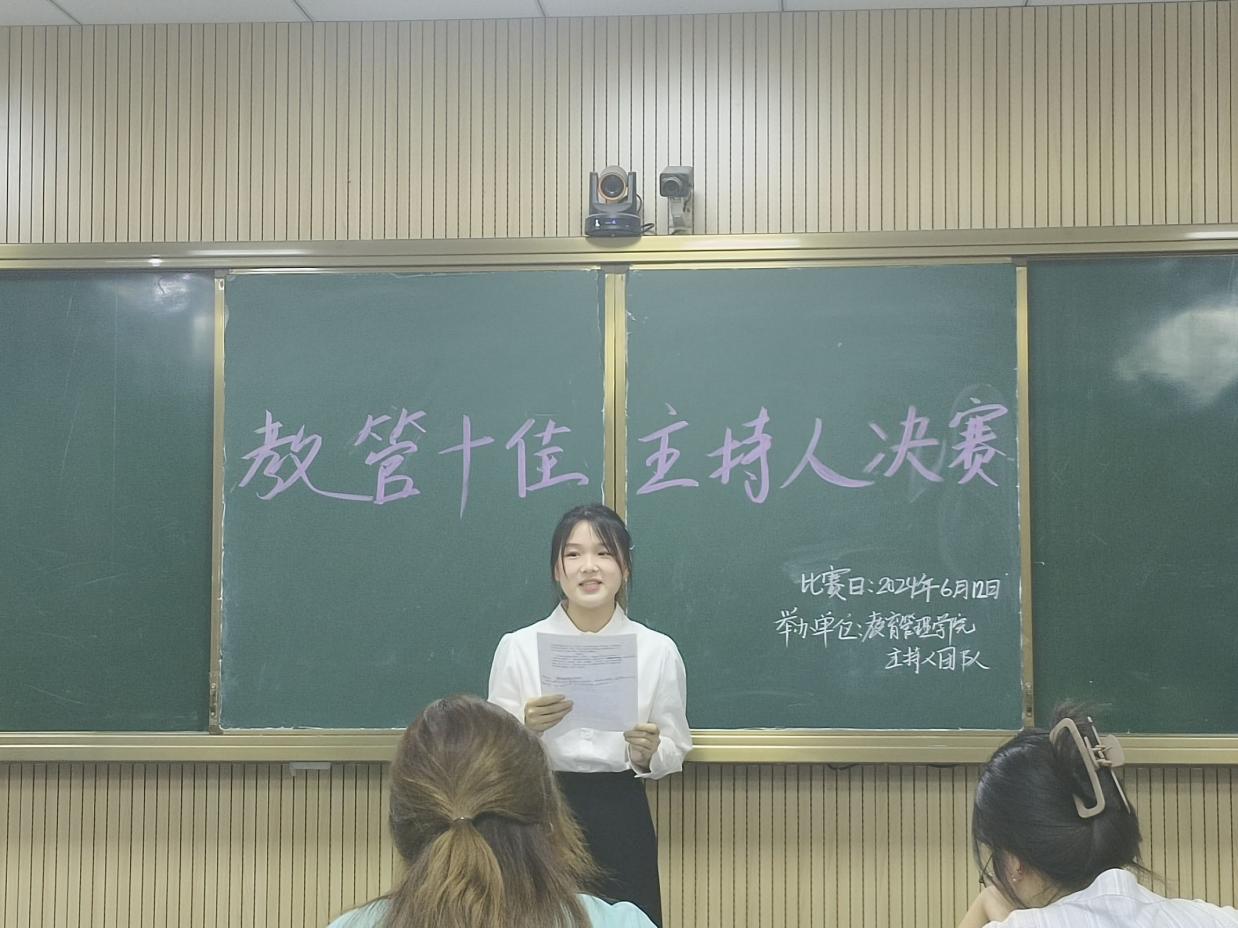 教管十佳主持人决赛
比赛日:2024年6月12日
举办单位:教育管理学院
主持人团队